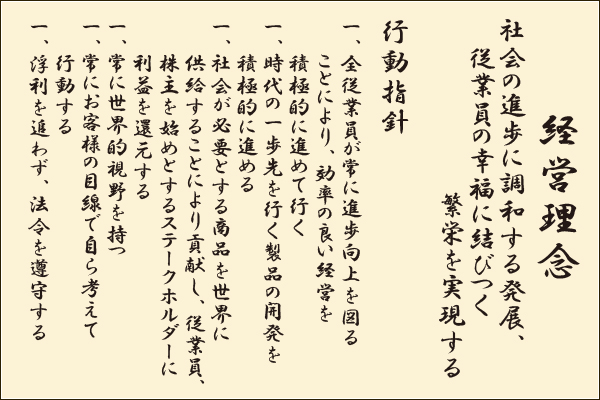 経営理念
社会の進歩に調和する発展、
従業員の幸福に結びつく
繁栄を実現する
行動指針
一、全従業員が常に進歩向上を図る
ことにより、効率の良い経営を
積極的に進めて行く
一、時代の一歩先を行く製品の開発を
積極的に進める
一、社会が必要とする商品を世界に
供給することにより貢献し、従業員、
株主を始めとするステークホルダーに
利益を還元する
一、常に世界的視野を持つ
一、常にお客様の目線で自ら考えて
行動する
一、浮利を追わず、法令を遵守する